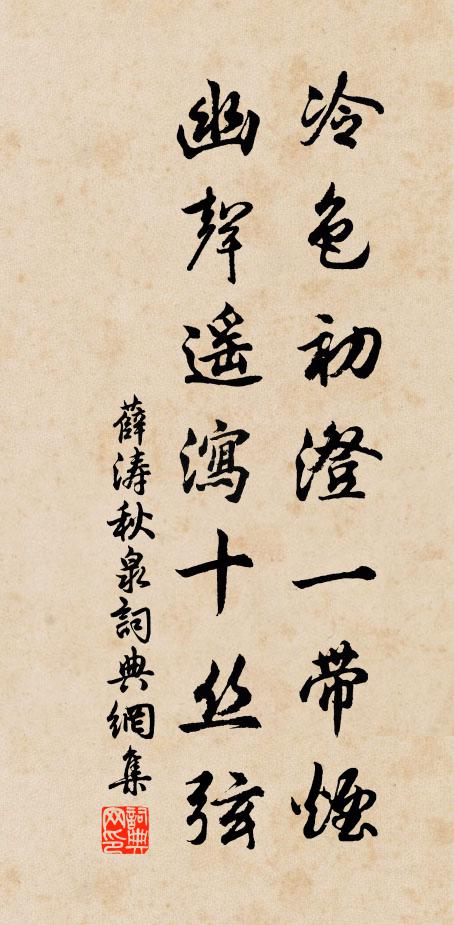 冷色初澄一帶煙
幽聲遥瀉十丝弦
薛涛秋泉詞典網集
詞典网印